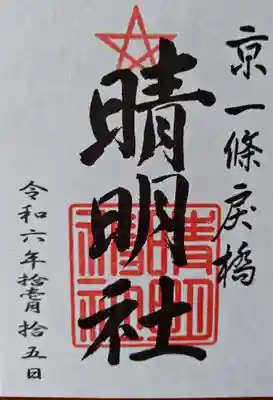 京一條戻橋
晴明社
令和六年拾壹月拾五日